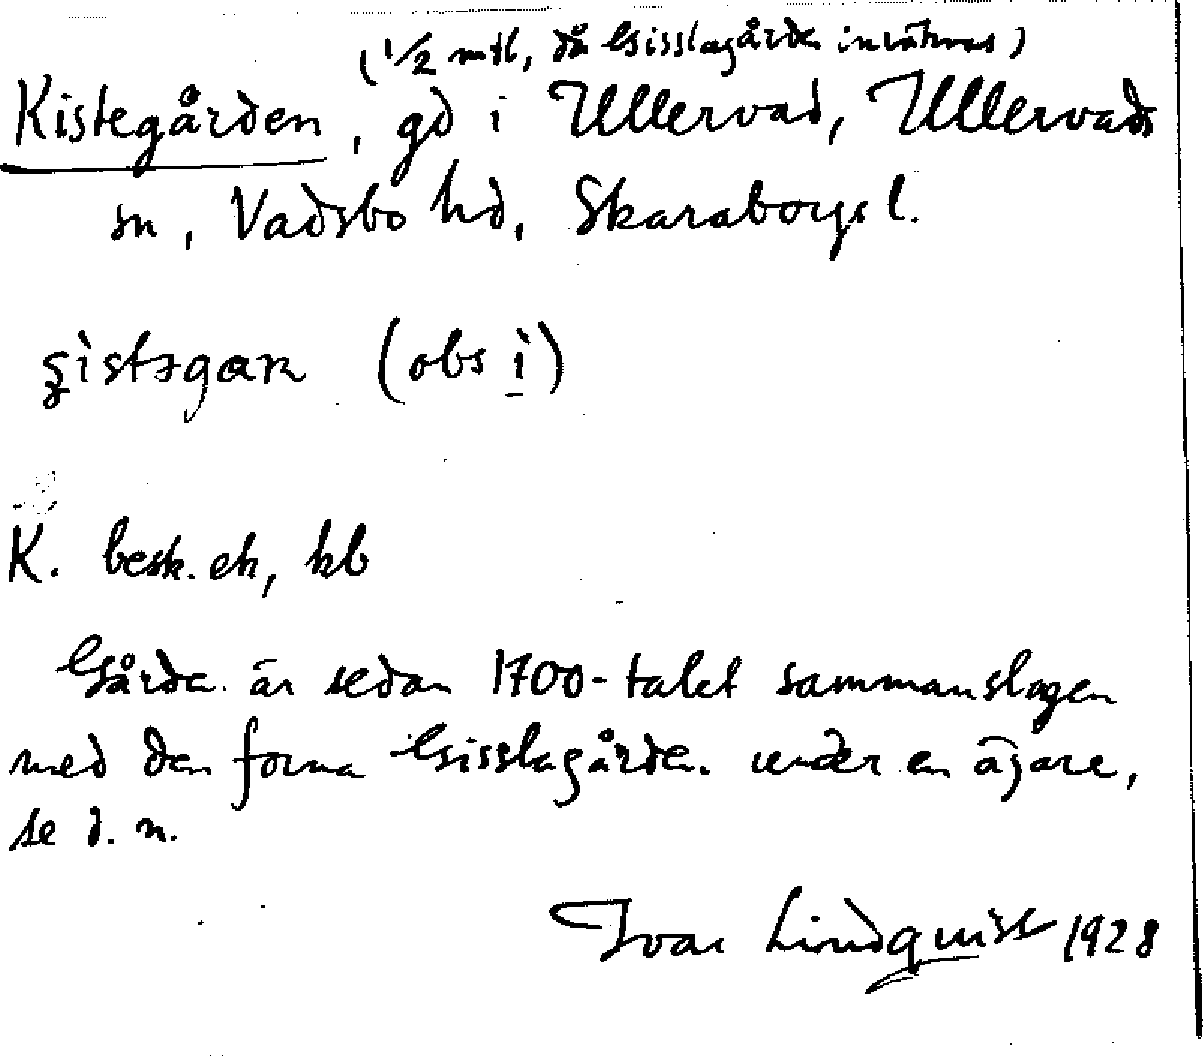 (1/2 mtl, då Gisslagården inräknas)
Kistegården, gd i Ullervad, Ullervads
sn, Vadsbo hd, Skaraborgs l.
(obs i)
K. besk. ek, kb
Gården är sedan 1700-talet sammanslagen
med den forna Gisslagården under en ägare,
se d. n.
Ivar Lindquist 1928